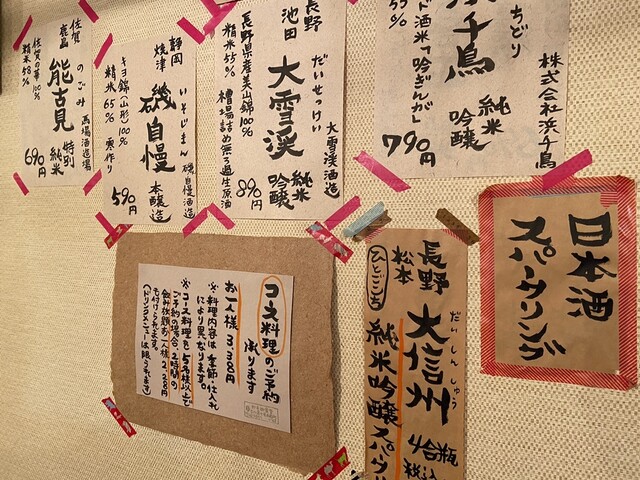 佐賀
鹿島
のごみ
能古見
特別
純米
馬場酒造場
佐賀の華100%
精米58%
690円
静岡
焼津
いそじまん
磯自慢
本醸造
磯自慢酒造
キヨ錦(山形)100%
精米65%
590円
長野
池田
だいせっけい
大雪渓
純米
吟醸
大雪渓酒造
長野県産美山錦100%
精米55%
槽場詰め無ろ過生原酒
890円
ちどり
千鳥
純米
吟醸
株式会社浜千鳥
酒米「吟ぎんが」
55%
790円
日本酒
スパークリング
長野
松本
ひとごこち
だいしんしゅう
大信州
純米吟醸スパーク
4合瓶
税込
コース料理のご予約
承ります
お一人様3,338円
※料理内容は季節、仕入れ
により異なります。
※コース料理を5名様以上で
ご予約の場合、2時間の
飲み放題お一人様2,228円
も付けられます。
(ドリンクメニューは限られます)